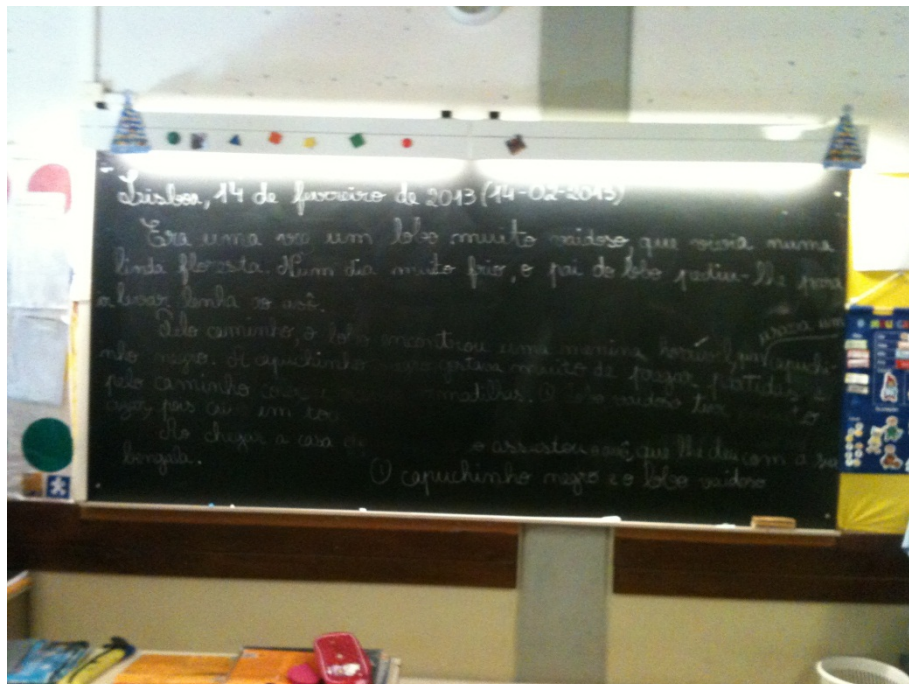 Lisboa, 14 de fevereiro de 2013 (14-02-2013)
Era uma vez um lobo muito vaidoso, que vivia numa
linda floresta. Num dia muito frio, o pai do lobo pediu-lhe para
levar lenha ao avô.
Pelo caminho, o lobo encontrou uma menina horrível, capuchi-
nho negro. A capuchinho gostava muito de pregar partidas e
pelo caminho armadilhas. O lobo vaidoso teve
azar, pois caiu em
Ao chegar a casa assustou o avô, que lhe deu com a
bengala.
O capuchinho negro e o lobo vaidoso